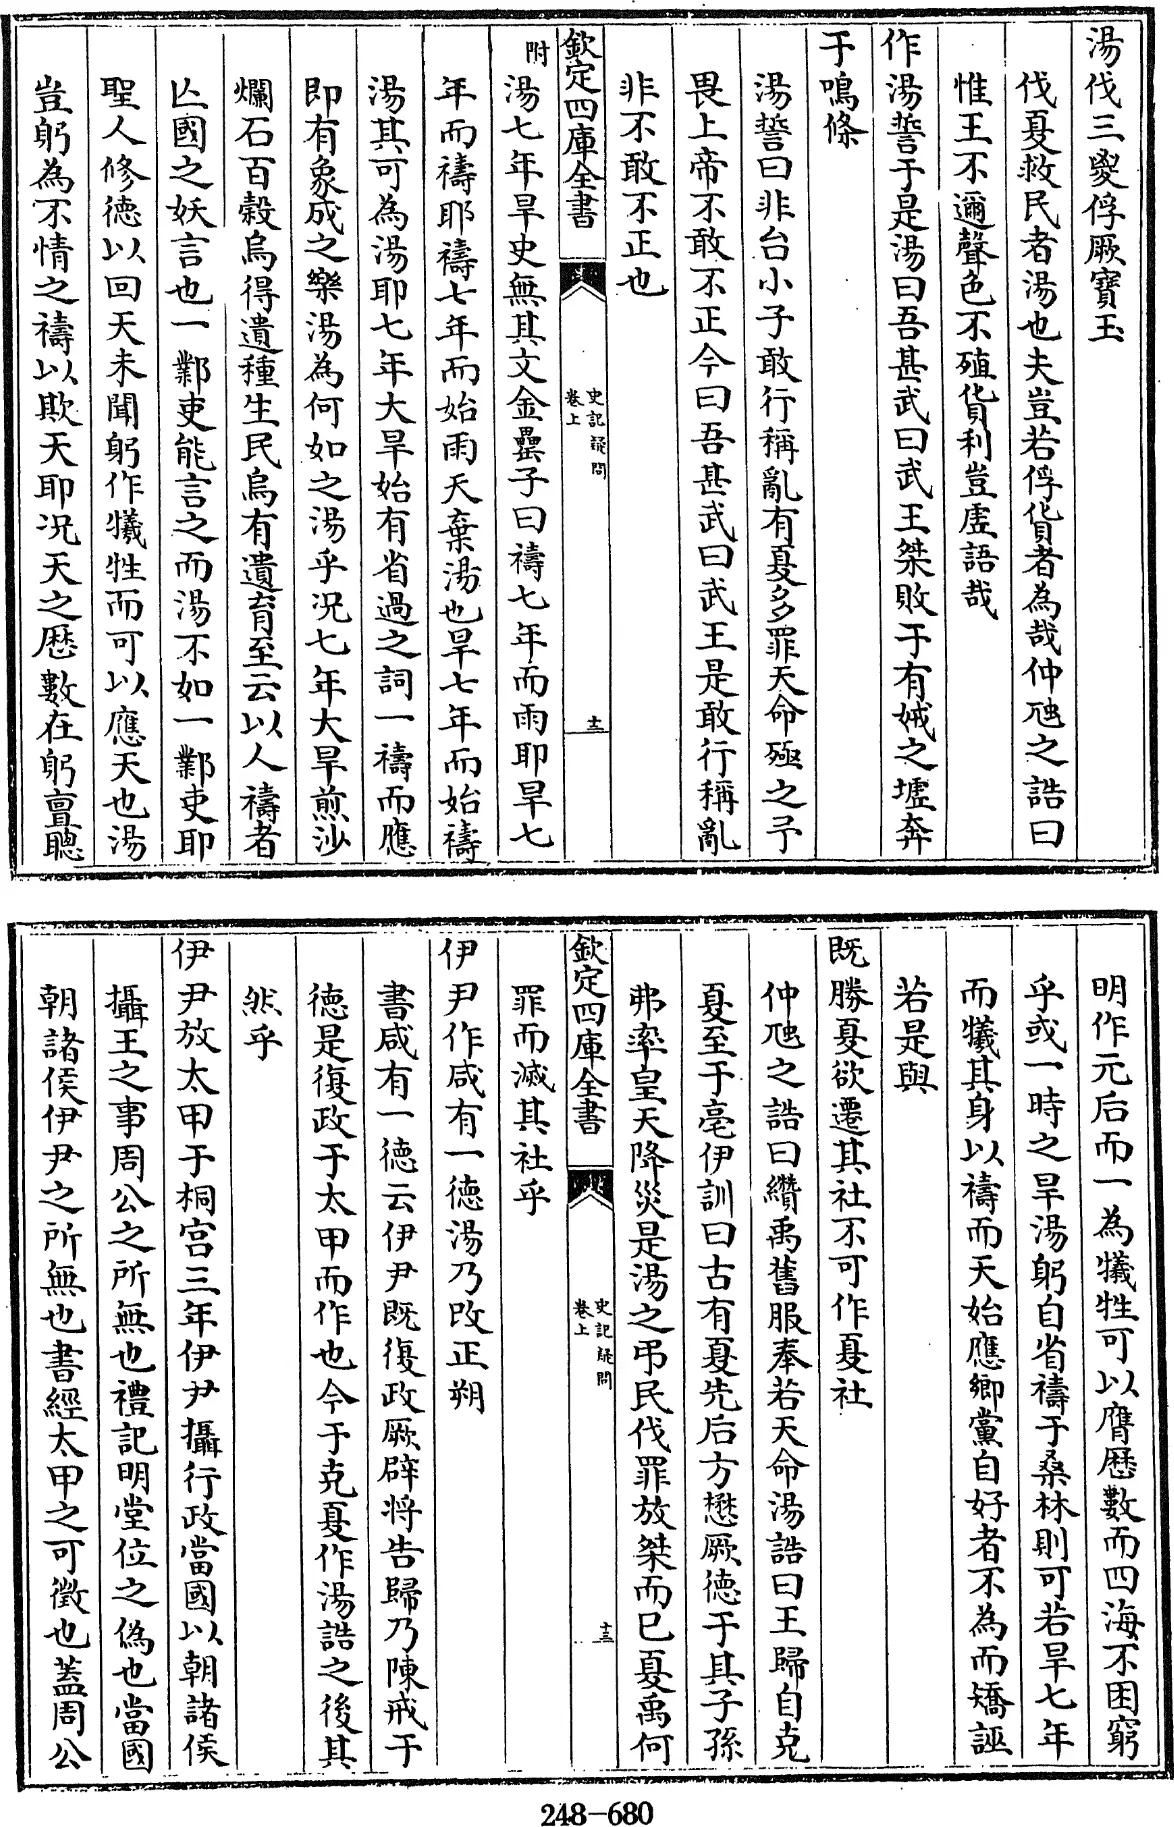 湯伐三㚇俘厥寶玉
伐夏救民者湯也夫豈若俘貨者為哉仲虺之誥曰
惟王不邇聲色不殖貨利豈虚語哉
作湯誓于是湯曰吾甚武曰武王桀敗于有娀之墟奔
于鳴條
湯誓曰非台小子敢行稱亂有夏多罪天命殛之予
畏上帝不敢不正今曰吾甚武曰武王是敢行稱亂
非不敢不正也
欽定四庫全書
史記疑問
卷上
十二
附湯七年旱史無其文金罍子曰禱七年而雨耶旱七
年而禱耶禱七年而始雨天棄湯也旱七年而始禱
湯其可為湯耶七年大旱始有省過之詞一禱而應
即有象成之樂湯為何如之湯乎況七年大旱煎沙
爛石百穀烏得遺種生民烏有遺育至云以人禱者
亾國之妖言也一鄴吏能言之而湯不如一鄴吏耶
聖人修德以回天未聞躬作犧牲而可以應天也湯
豈躬為不情之禱以欺天耶況天之厯數在躬亶聰
明作元后而一為犧牲可以膺厯數而四海不困窮
乎或一時之旱湯躬自省禱于桑林則可若旱七年
而犧其身以禱而天始應鄉黨自好者不為而矯誣
若是與
既勝夏欲遷其社不可作夏社
仲虺之誥曰纘禹舊服奉若天命湯誥曰王歸自克
夏至于亳伊訓曰古有夏先后方懋厥德于其子孫
弗率皇天降災是湯之弔民伐罪放桀而已夏禹何
欽定四庫全書
史記疑問
卷上
十三
罪而滅其社乎
伊尹作咸有一德湯乃改正朔
書咸有一德云伊尹既復政厥辟將告歸乃陳戒于
德是復政于太甲而作也今于克夏作湯誥之後其
然乎
伊尹放太甲于桐宫三年伊尹攝行政當國以朝諸侯
攝王之事周公之所無也禮記明堂位之偽也當國
朝諸侯伊尹之所無也書經太甲之可徵也蓋周公
248-680